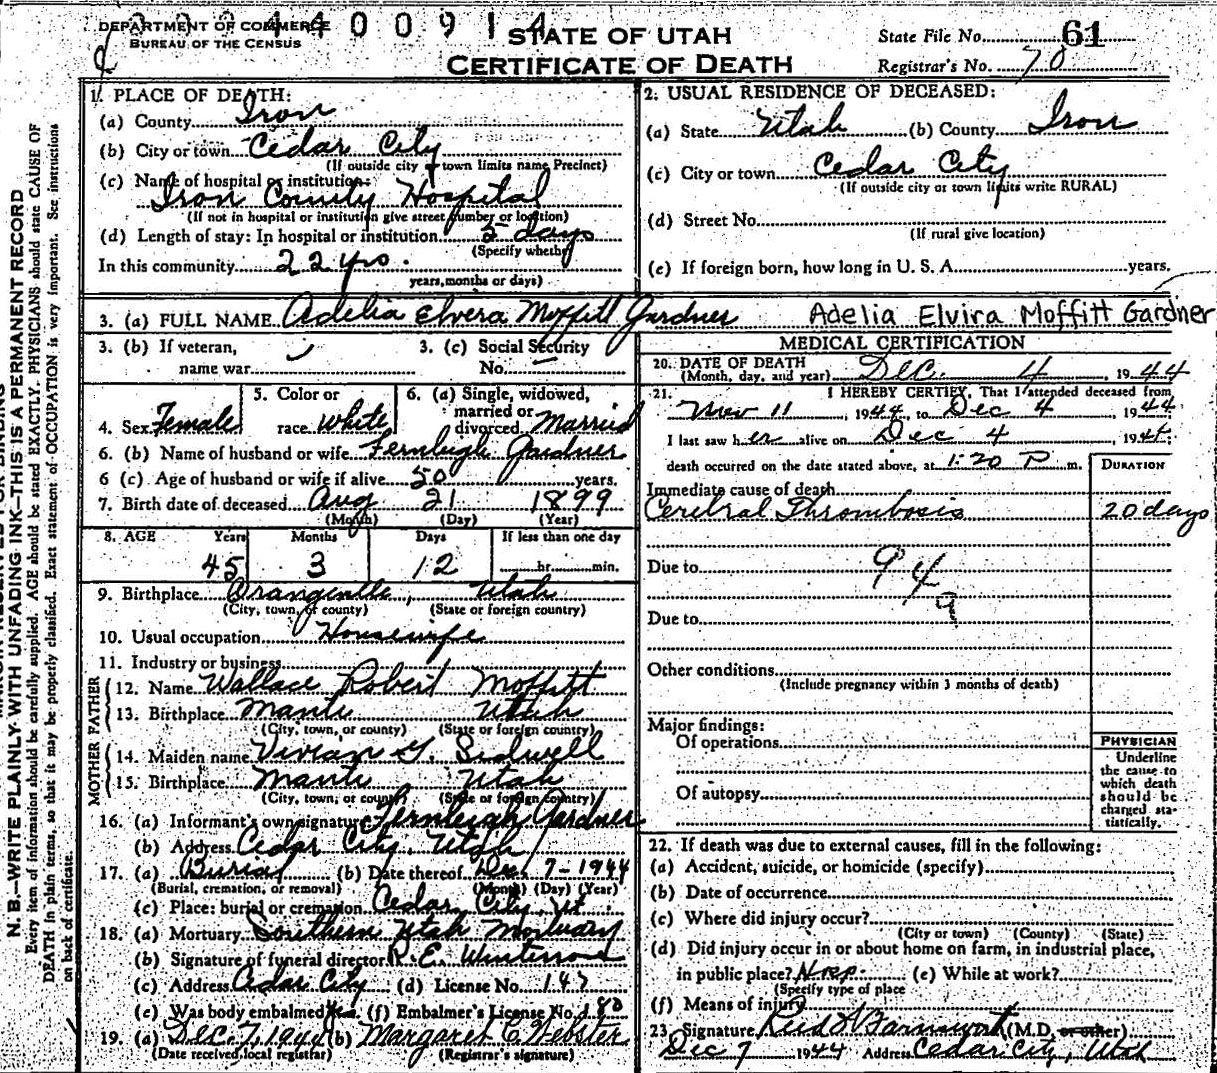 DEPARTMENT OF COMMERCE
BUREAU OF THE CENSUS
4 4 0 0 9 1 4
STATE OF UTAH
CERTIFICATE OF DEATH
State File No. 61
Registrar's No. 70
N. B.—WRITE PLAINLY WITH UNFADING INK—THIS IS A PERMANENT RECORD
Every item of information should be carefully supplied. AGE should be stated EXACTLY. PHYSICIANS should state CAUSE OF
DEATH in plain terms, so that it may be properly classified. Exact statement of OCCUPATION is very important. See instructions
on back of certificate.
1. PLACE OF DEATH:
(a) County Iron
(b) City or town Cedar City
(If outside city or town limits name Precinct)
(c) Name of hospital or institution:
Iron County Hospital
(If not in hospital or institution give street number or location)
(d) Length of stay: In hospital or institution 5 days
(Specify whether
In this community 22 yrs.
years, months or days)
2. USUAL RESIDENCE OF DECEASED:
(a) State Utah (b) County Iron
(c) City or town Cedar City
(If outside city or town limits write RURAL)
(d) Street No.
(If rural give location)
(e) If foreign born, how long in U. S. A. years.
3. (a) FULL NAME Adelia Elvera Moffitt Gardner Adelia Elvira Moffitt Gardner
3. (b) If veteran,
name war
3. (c) Social Security
No. —
4. Sex Female
5. Color or
race White
6. (a) Single, widowed,
married or
divorced Married
6. (b) Name of husband or wife Fernleigh Gardner
6 (c) Age of husband or wife if alive 50 years.
7. Birth date of deceased Aug 21 1899
(Month) (Day) (Year)
8. AGE Years Months Days If less than one day
45 3 12 hr. min.
9. Birthplace Orangeville, Utah
(City, town, or county) (State or foreign country)
10. Usual occupation Housewife
11. Industry or business
FATHER
12. Name Wallace Robert Moffitt
13. Birthplace Manti Utah
(City, town, or county) (State or foreign country)
MOTHER
14. Maiden name Vivian Y. Sidwell
15. Birthplace Manti Utah
(City, town, or county) (State or foreign country)
16. (a) Informant's own signature Fernleigh Gardner
(b) Address Cedar City, Utah
17. (a) Burial (b) Date thereof Dec. 7-1944
(Burial, cremation, or removal) (Month) (Day) (Year)
(c) Place: burial or cremation Cedar City, Ut.
18. (a) Mortuary Southern Utah Mortuary
(b) Signature of funeral director R. E.
(c) Address Cedar City (d) License No. 147
(e) Was body embalmed Yes (f) Embalmer's License No. 180
19. (a) Dec. 7, 1944 (b) Margaret C. Webster
(Date received local registrar) (Registrar's signature)
MEDICAL CERTIFICATION
20. DATE OF DEATH
(Month, day, and year) Dec. 4, 1944
21. I HEREBY CERTIFY, That I attended deceased from
Nov 11, 1944, to Dec 4, 1944
I last saw her alive on Dec 4, 1944;
death occurred on the date stated above, at 1:20 P m.
DURATION
Immediate cause of death
Cerebral Thrombosis 20 days
Due to 94
9
Due to
Other conditions
(Include pregnancy within 3 months of death)
Major findings:
Of operations
Of autopsy
PHYSICIAN
Underline
the cause to
which death
should be
charged sta-
tistically.
22. If death was due to external causes, fill in the following:
(a) Accident, suicide, or homicide (specify)
(b) Date of occurrence
(c) Where did injury occur?
(City or town) (County) (State)
(d) Did injury occur in or about home on farm, in industrial place,
in public place? (e) While at work?
(Specify type of place
(f) Means of injury
23. Signature Reid A Farnsworth (M.D. or other)
Dec 7 1944 Address Cedar City, Utah